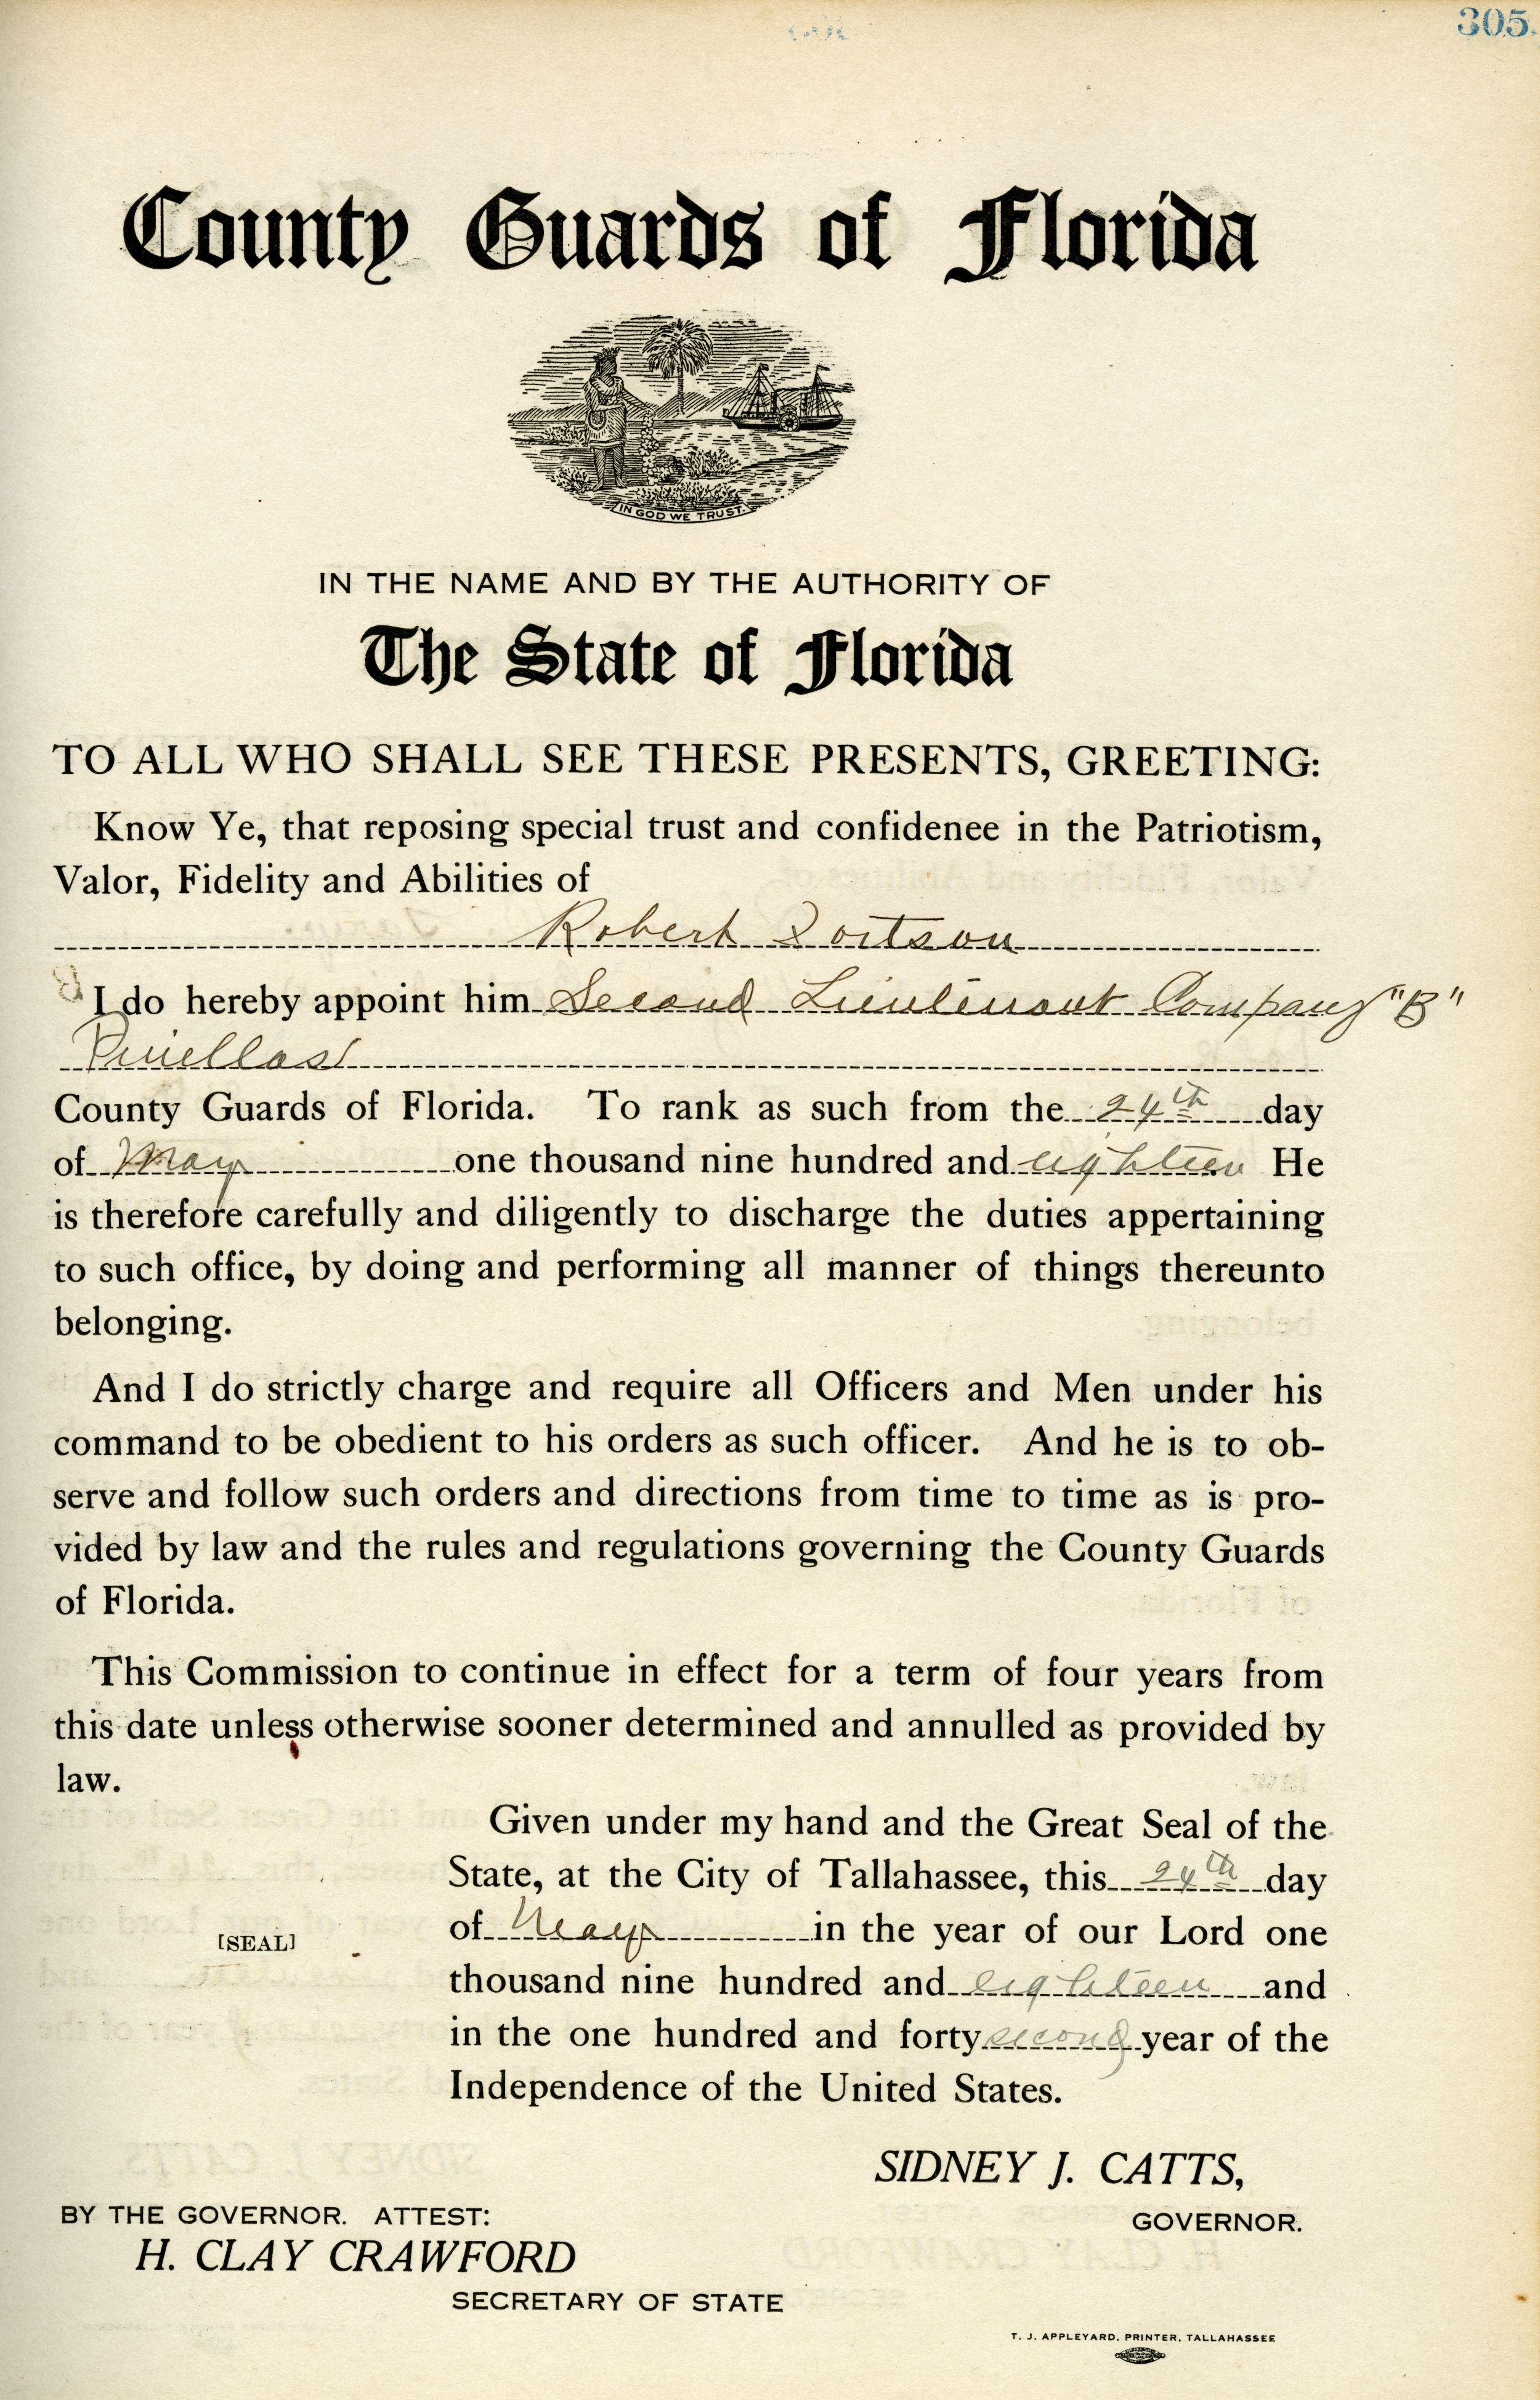 305.
County Guards of Florida
IN GOD WE TRUST.
IN THE NAME AND BY THE AUTHORITY OF
The State of Florida
TO ALL WHO SHALL SEE THESE PRESENTS, GREETING:
Know Ye, that reposing special trust and confidenee in the Patriotism,
Valor, Fidelity and Abilities of
Robert
I do hereby appoint him Second Lieutenant Company "B"
Pinellas
County Guards of Florida. To rank as such from the 24th day
of May one thousand nine hundred and eighteen He
is therefore carefully and diligently to discharge the duties appertaining
to such office, by doing and performing all manner of things thereunto
belonging.
And I do strictly charge and require all Officers and Men under his
command to be obedient to his orders as such officer. And he is to ob-
serve and follow such orders and directions from time to time as is pro-
vided by law and the rules and regulations governing the County Guards
of Florida.
This Commission to continue in effect for a term of four years from
this date unless otherwise sooner determined and annulled as provided by
law.
Given under my hand and the Great Seal of the
State, at the City of Tallahassee, this 24th day
of May in the year of our Lord one
[SEAL]
thousand nine hundred and eighteen and
in the one hundred and forty second year of the
Independence of the United States.
SIDNEY J. CATTS,
GOVERNOR.
BY THE GOVERNOR. ATTEST:
H. CLAY CRAWFORD
SECRETARY OF STATE
T. J. APPLEYARD, PRINTER, TALLAHASSEE